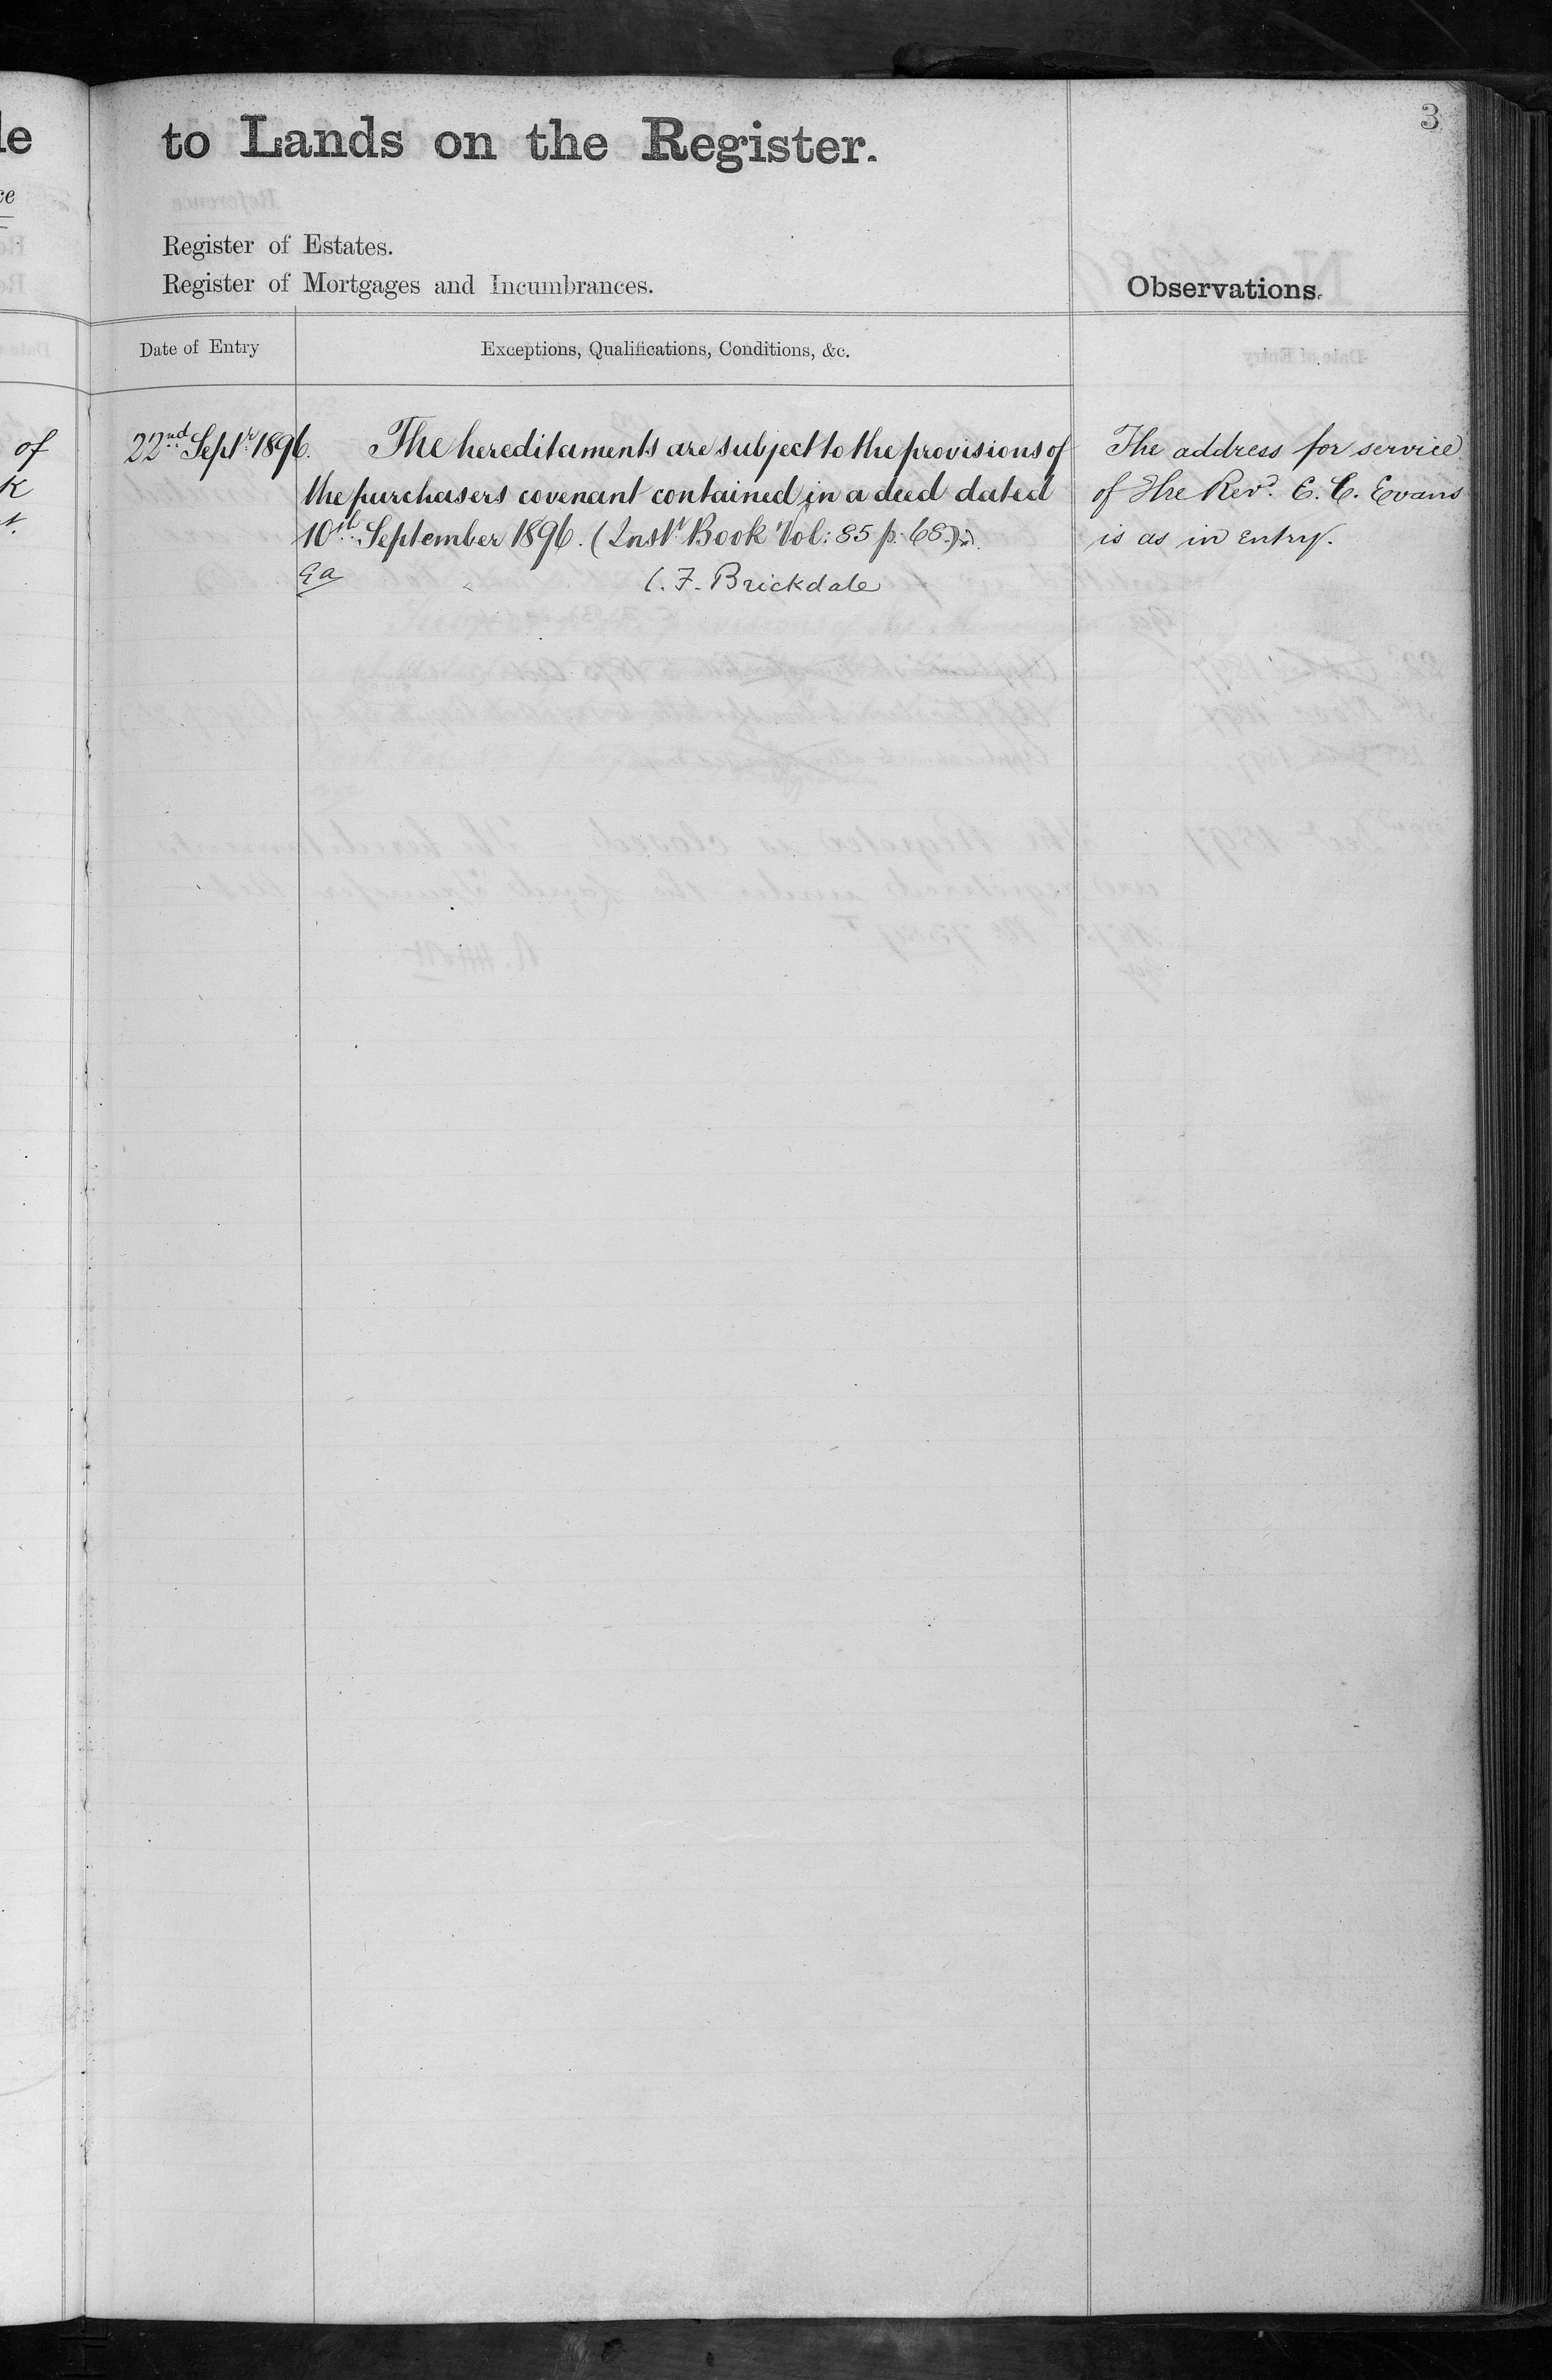 3
to Lands on the Register.
Register of Estates.
Register of Mortgages and Incumbrances.
Observations.
Date of Entry
Exceptions, Qualifications, Conditions, &c.
22nd Septr 1896.
The hereditaments are subject to the provisions of
the purchasers covenant contained in a deed dated
10th September 1896. (Instt Book Vol: 85 p. 68.)
C. F. Brickdale
The address for service
of The Revd. E. C. Evans
is as in entry.
of